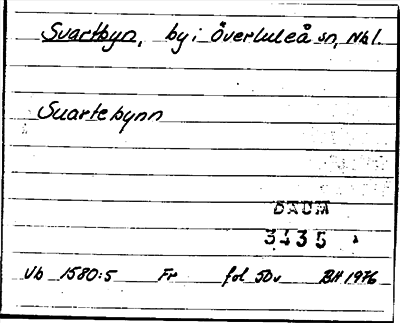 Svartbyn, by i Överluleå sn, Nbl.
Suartebynn
DAUM
3435
Vb 1580:5 Fr fol 50v BH 1976